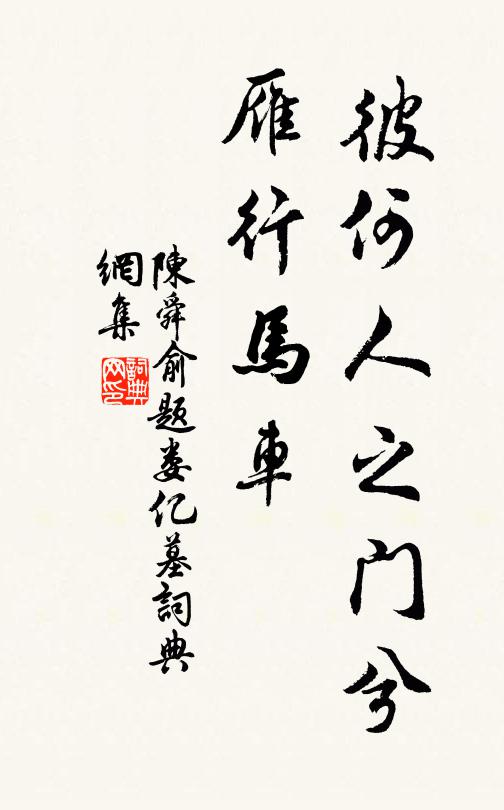 彼何人之门兮
雁行馬車
陳舜俞题娄亿墓詞典
網集
詞典
网印